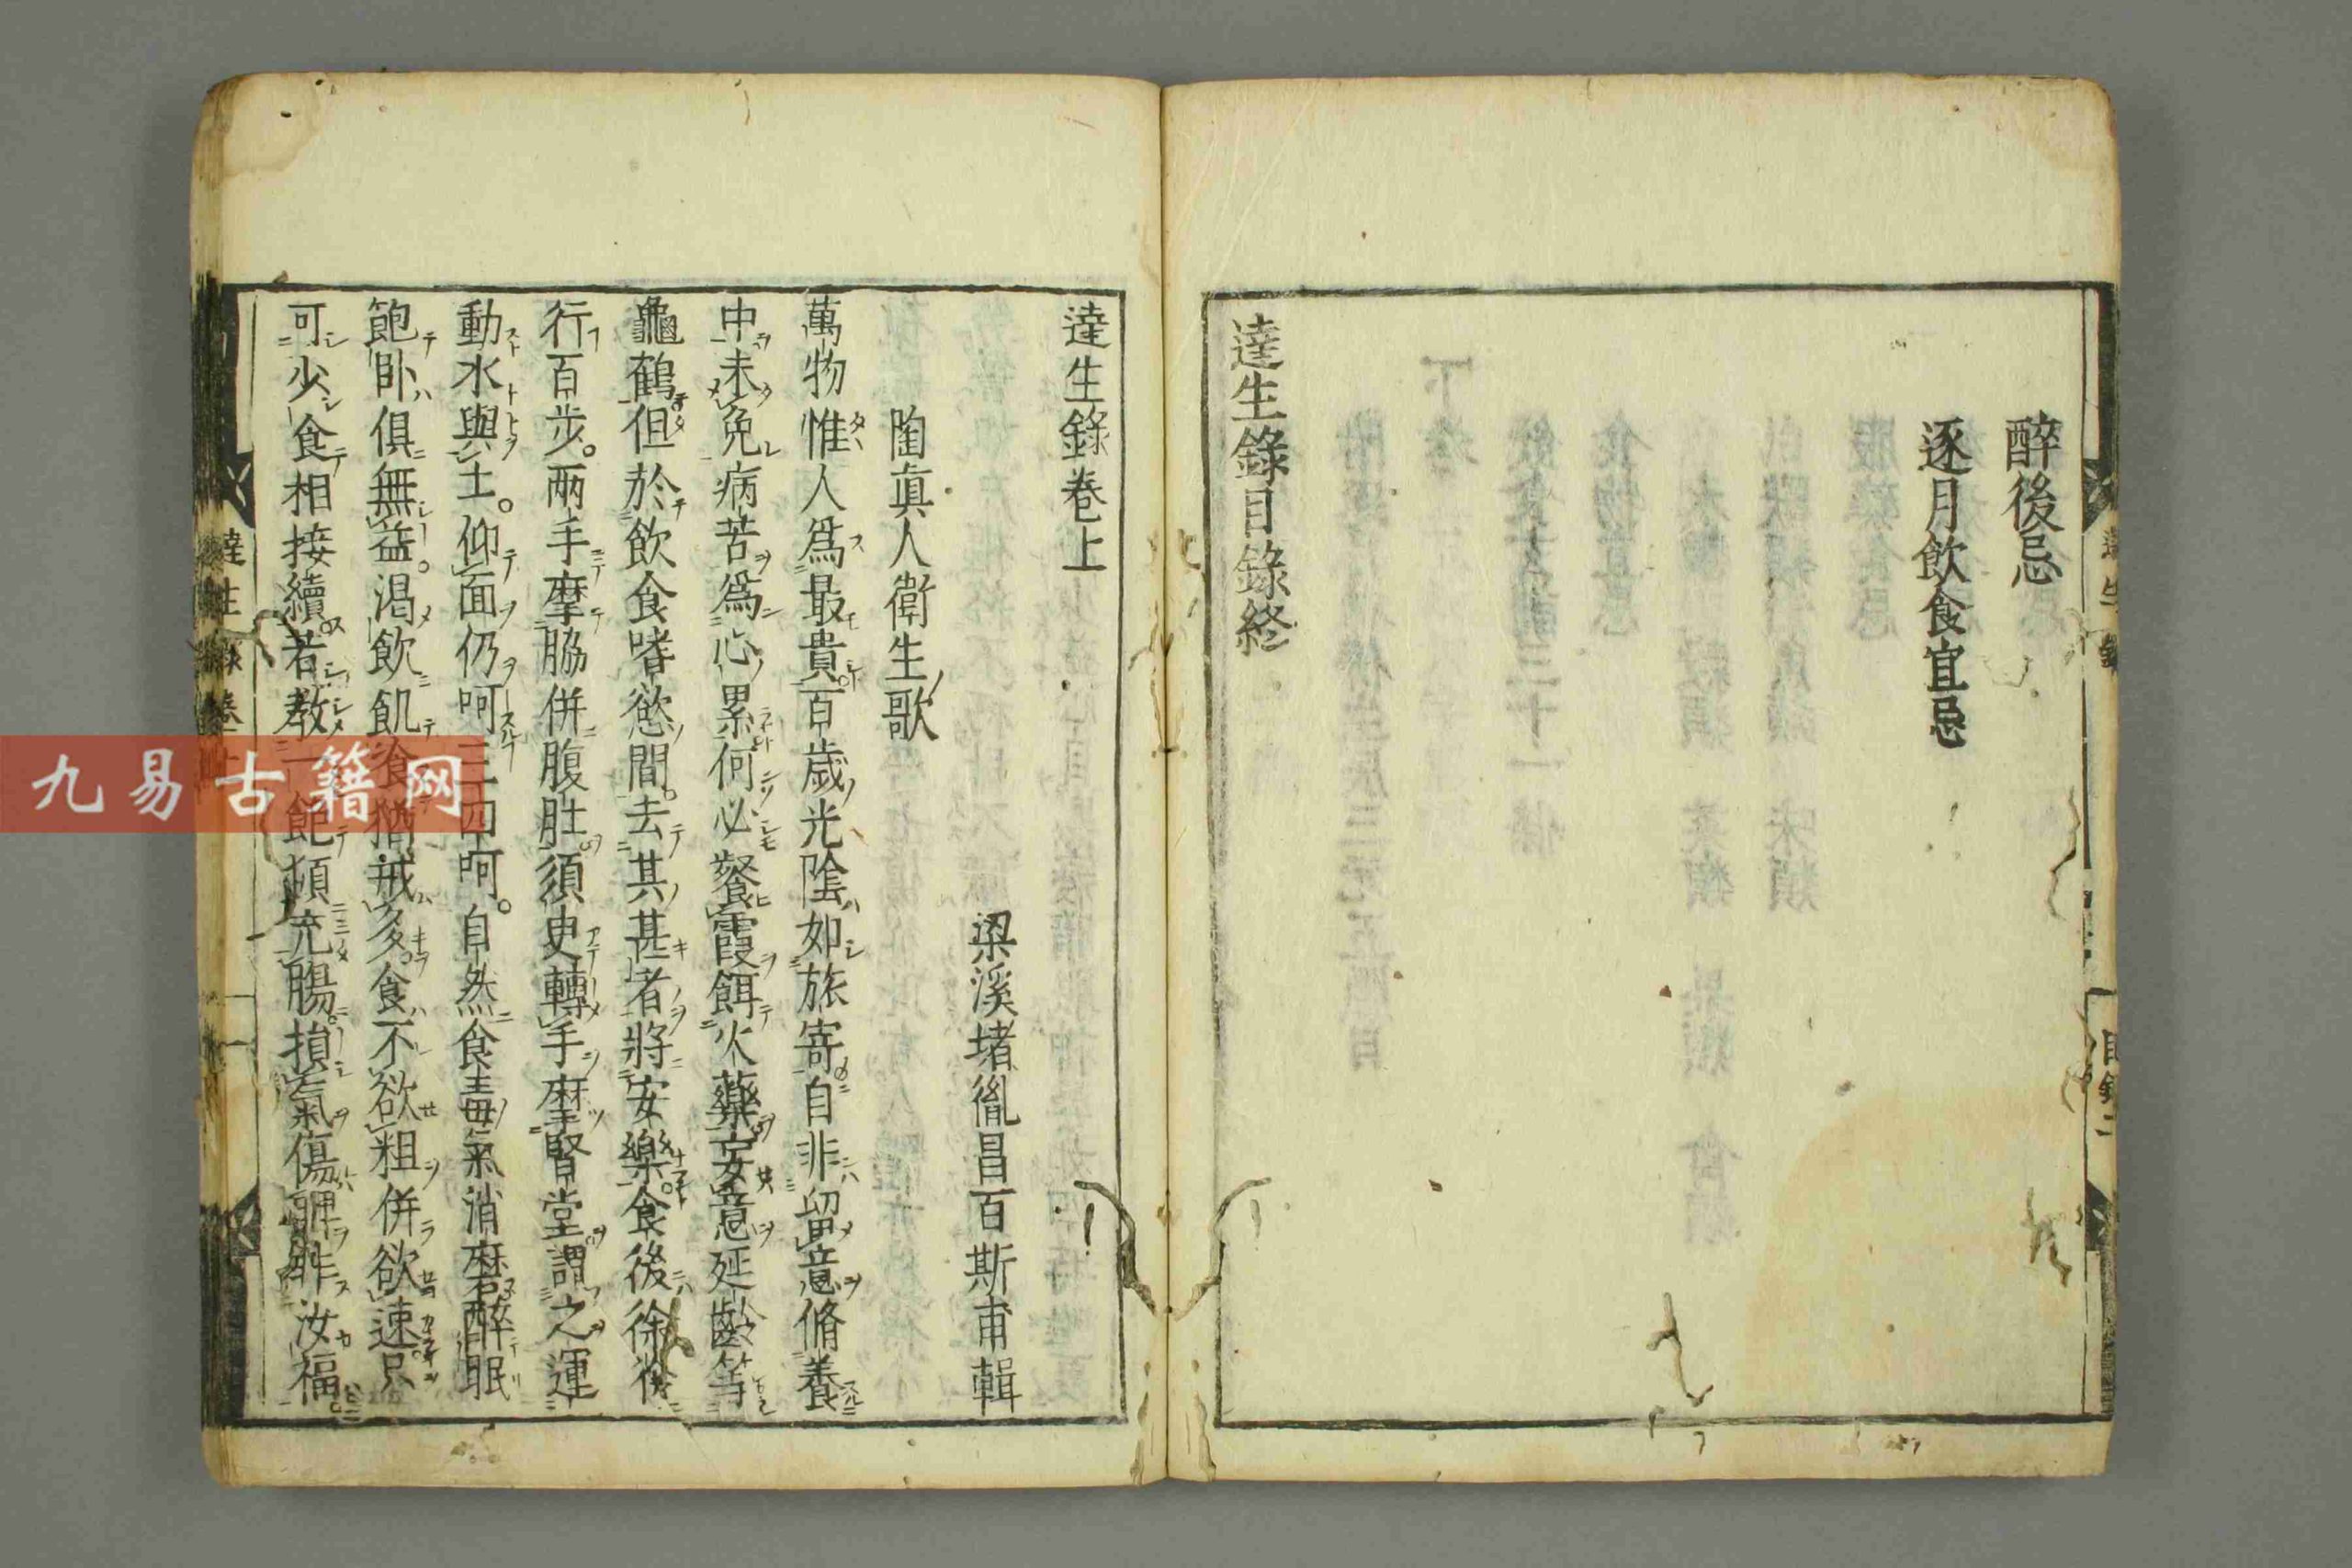 醉後忌
逐月飲食宜忌
達生錄目錄終
達生錄卷上
梁溪堵胤昌百斯甫輯
陶眞人衛生歌
萬物惟人爲最貴百歲光陰如旅寄自非留意脩養
中未免病苦爲心累何必餐霞餌火藥妄意延齡等
龜鶴但於飲食嗜慾間去其甚者將安樂食後徐徐
行百步兩手摩脇併腹肚須史轉手摩腎堂謂之運
動水與土仰面仍呵三四呵自然食毒氣消磨醉眠
飽卧俱無益渴飲飢飡猶戒多食不欲粗併欲速只
可少食相接續若教一飽頓充腸損氣傷脾非汝福
達生錄卷上
目錄二
九易古籍网